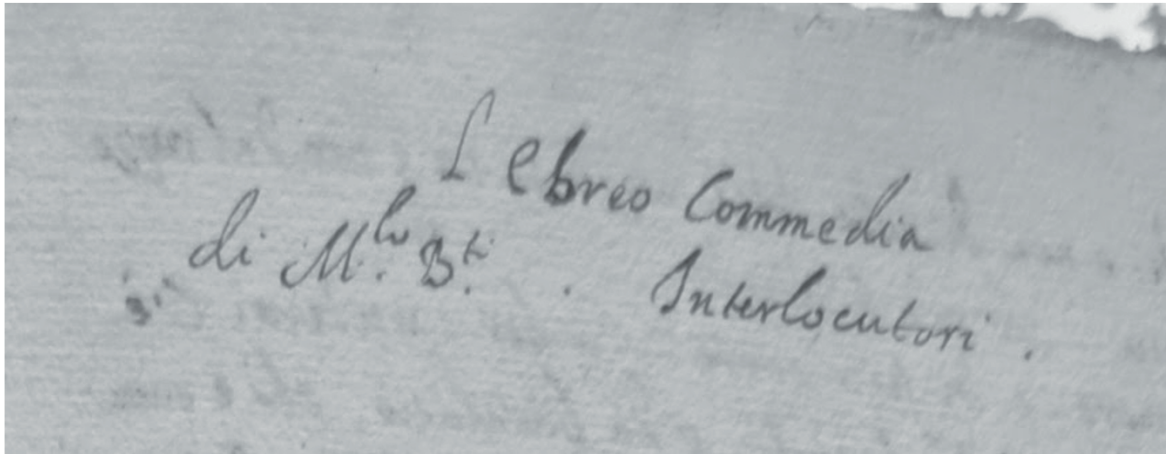 L Ebreo Commedia
di M.lo B.ti . Interlocutori .